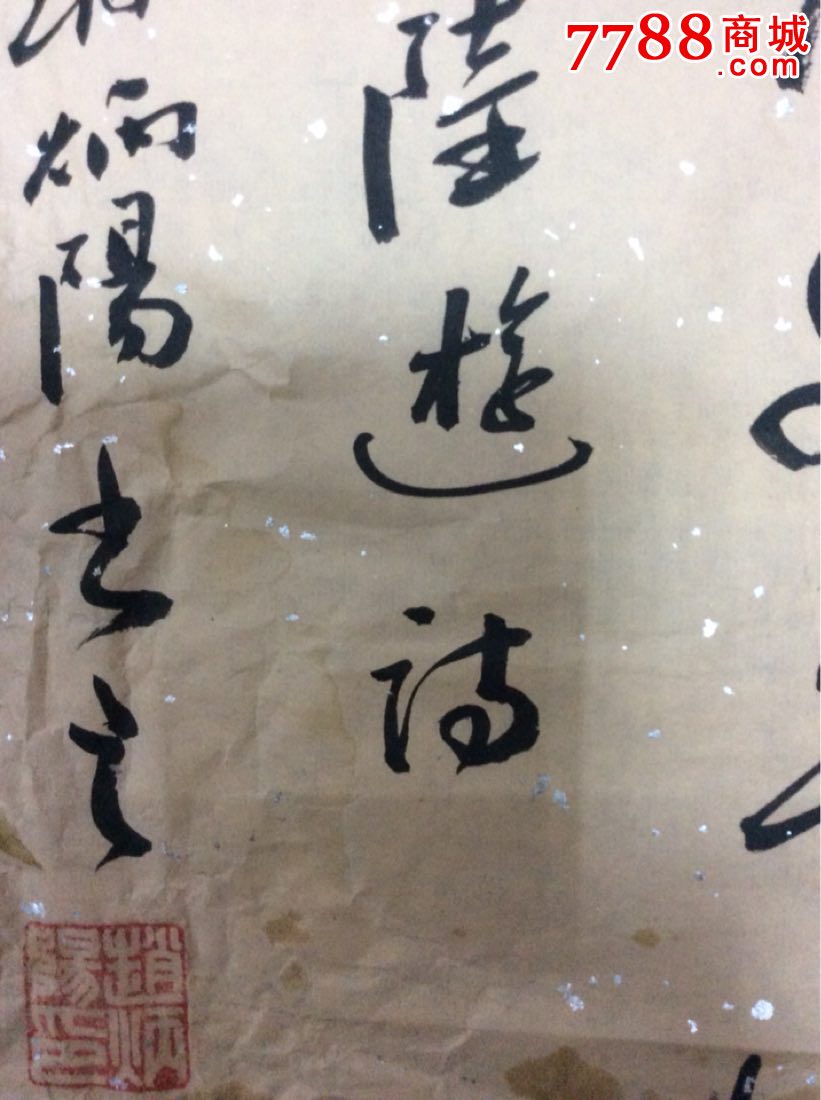 7788商城
.com
陸遊詩
炳陽书之
趙炳陽印